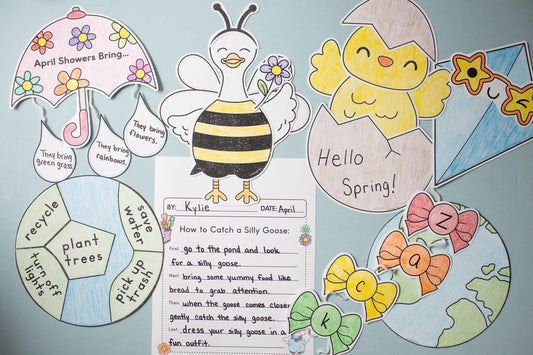 April Showers Bring...
They bring
green grass.
They bring
rainbows.
They bring
flowers.
recycle
save
water
plant
trees
turn off
lights
pick up
trash
BY: Kylie DATE: April
How to Catch a Silly Goose:
First, go to the pond and look
for a silly goose.
Next, bring some yummy food like
bread to grab attention.
Then, when the goose comes closer
gently catch the silly goose.
Last, dress your silly goose in a
fun outfit.
Hello
Spring!
z
a
c
k